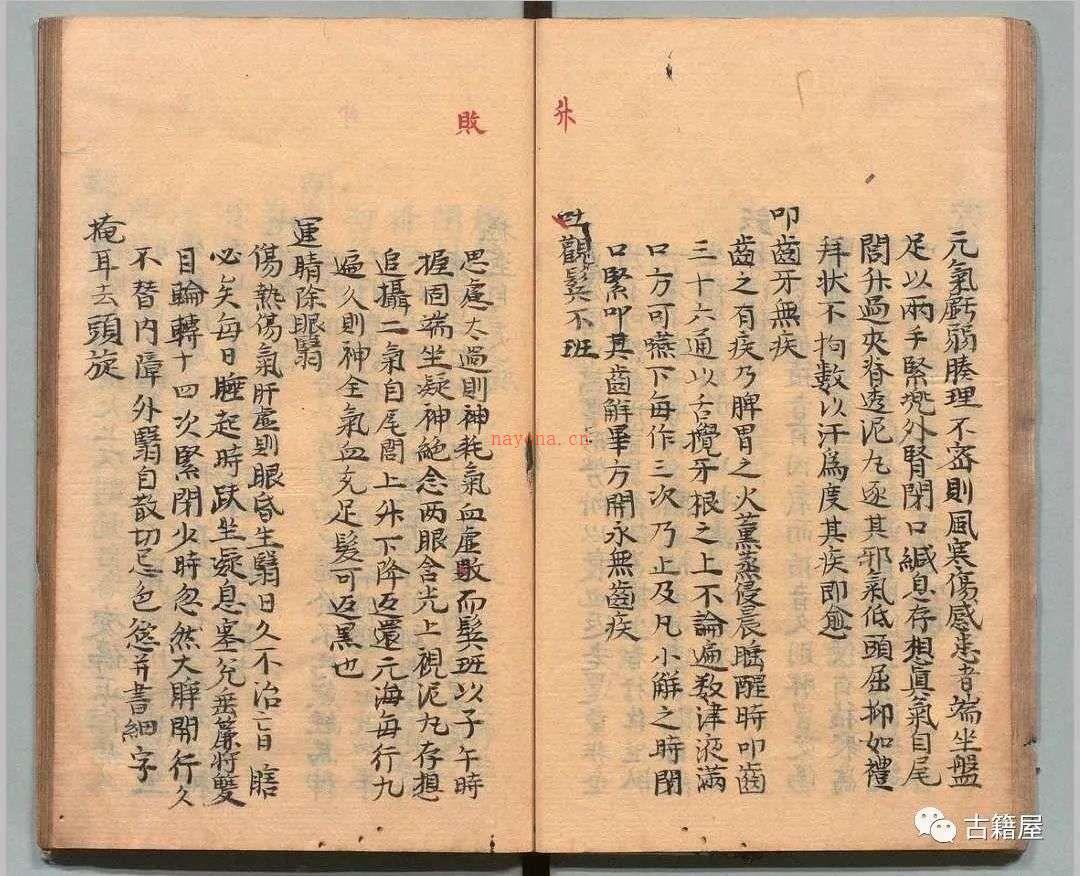 升
元氣虧弱腠理不密則風寒傷感患者端坐盤
足以兩手緊兜外腎閉口緘息存想眞氣自尾
閭升過夾脊透泥丸逐其邪氣低頭屈抑如禮
拜狀不拘數以汗爲度其疾即愈
叩齒牙無疾
齒之有疾乃脾胃之火薰蒸侵晨睡醒時叩齒
三十六通以舌攪牙根之上不論遍数津液滿
口方可嚥下每作三次乃止及凡小解之時閉
口緊叩其齒解畢方開永無齒疾
觀鬂不班
敗
思慮太過則神耗氣血虛敗而鬂班以子午時
握固端坐凝神絕念两眼含光上視泥丸存想
追攝二氣自尾閭上升下降返還元海每行九
遍久則神全氣血充足髮可返黑也
運睛除眼翳
傷熱傷氣肝虛則眼昏生翳日久不治盲瞎
必矣每日睡起時趺坐凝息塞兌垂簾將雙
目輪轉十四次緊閉少時忽然大睜開行久
不替内障外翳自散切忌色慾并書細字
掩耳去頭旋
nayona.cn
古籍屋